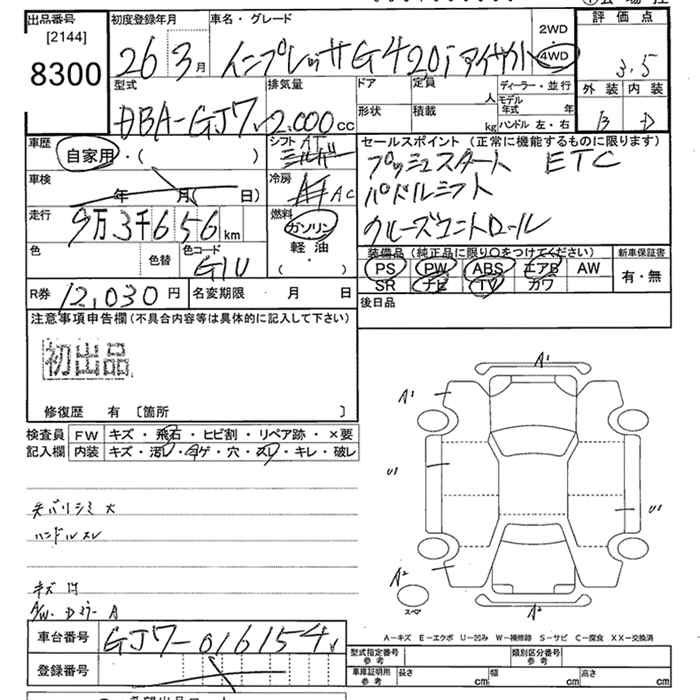 出品番号
[2144]
8300
初度登録年月
26 3月
車名・グレード
インプレッサ G4 2.0i アイサイト
2WD
4WD
評価点
3.5
外装 内装
B D
型式
DBA-GJ7
排気量
2,000cc
ドア
形状
定員 人
積載 kg
ディーラー・並行
モデル年式 年
ハンドル 左・右
車歴
自家用・( )
シフト
AT
セールスポイント (正常に機能するものに限ります)
プッシュスタート ETC
パドルシフト
クルーズコントロール
車検
年 月( 日)
冷房
AC
走行
9万3千656km
燃料
ガソリン
軽油
( ・ )
色
色替
色コード
G1U
装備品 (純正品に限り○をつけてください)
PS PW ABS エアB AW
SR ナビ TV カワ
新車保証書
有・無
R券 12,030円
名変期限 月 日
後日品
注意事項申告欄 (不具合内容等は具体的に記入して下さい)
初出品
修復歴 有 〔箇所 〕
検査員
記入欄
FW キズ・飛石・ヒビ割・リペア跡・×要
内装 キズ・汚レ・コゲ・穴・スレ・キレ・破レ
ハンドルスレ
A1
A1
U1
U1
A2
スペア
A2
A-キズ E-エクボ U-凹み W-補修跡 S-サビ C-腐食 XX-交換済
車台番号 GJ7-016154
登録番号
型式指定番号
参考
類別区分番号
参考
車庫証明用
参考
長さ cm
幅 cm
高さ cm